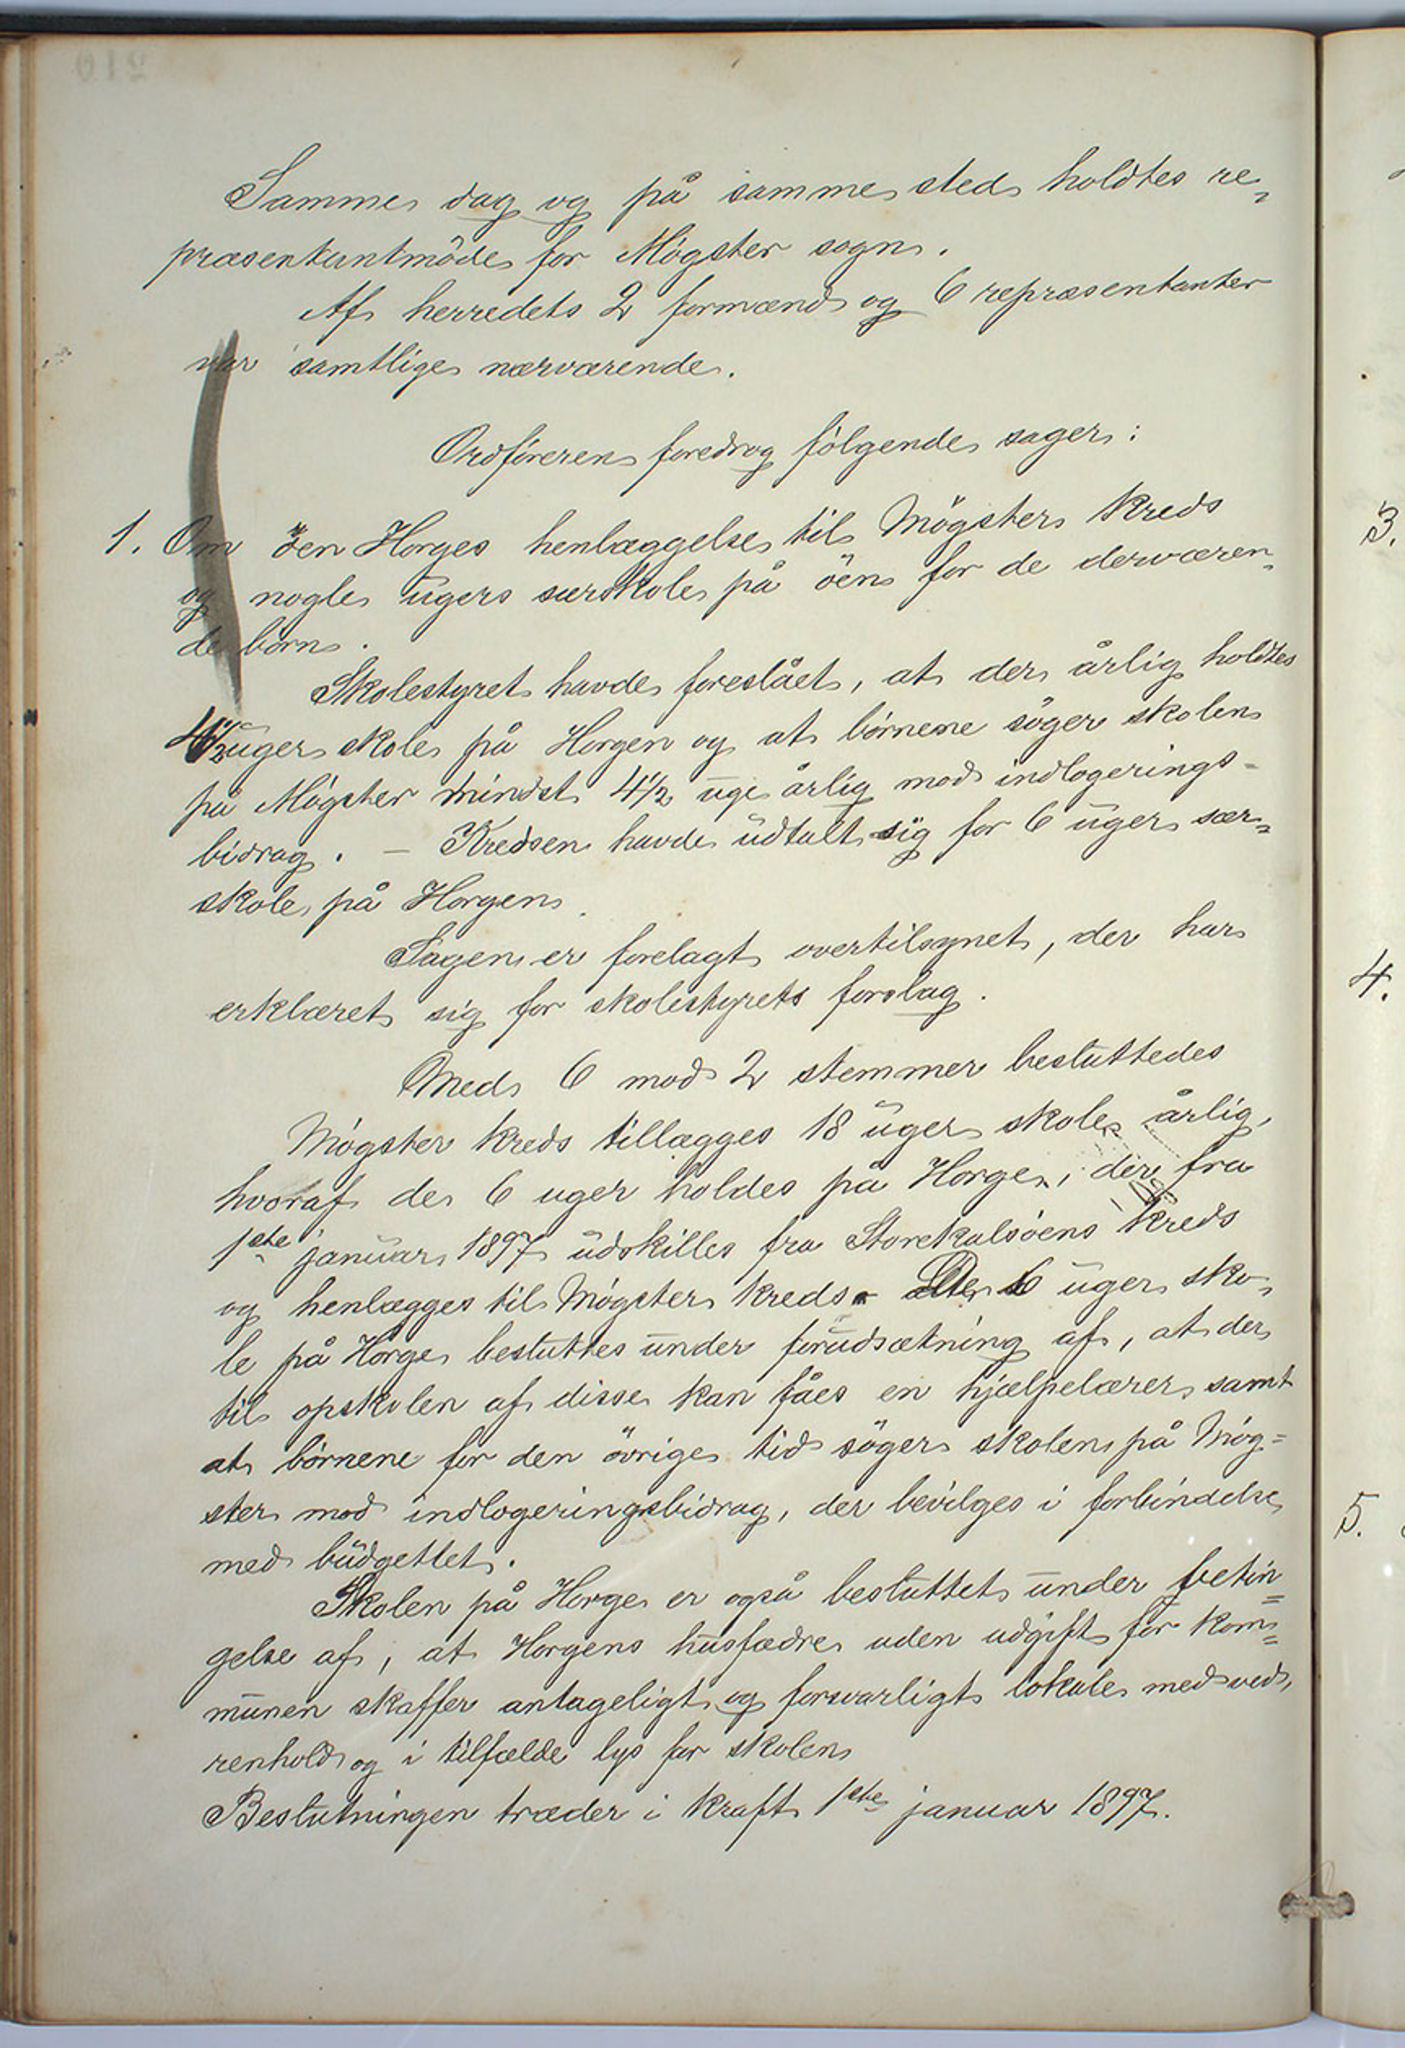 Samme dag og på samme sted holdtes re-
præsentantmöde for Møgster sogn.
Af herredets 2 formænd og 6 repræsentanter
var samtlige nærværende.
Ordföreren foredrog fölgende sager:
1. Om øen Horges henlæggelse til Møgster kreds
og nogle ugers særskole på öen for de derværen-
de börn.
Skolestyret havde foreslået, at der årlig holdtes
4 1/2 uger skole på Horgen og at börnene söger skolen
på Møgster mindst 4 1/2 uge årlig mod indlogerings-
bidrag. — Kredsen havde udtalt sig for 6 uger sær-
skole på Horgen.
Sagen er forelagt overtilsynet, der har
erklæret sig for skolestyrets forslag.
Med 6 mod 2 stemmer besluttedes
Møgster kreds tillægges 18 uger skole årlig,
hvoraf de 6 uger holdes på Horge, der fra
1ste januar 1897 udskilles fra Storekalsöens kreds
og henlægges til Møgster kreds. De 6 uger sko-
le på Horge besluttes under forudsætning af, at der
til opskolen af disse kan fåes en hjælpelærer, samt
at börnene for den övrige tid söger skolen på Møg-
ster mod indlogeringsbidrag, der bevilges i forbindelse
med budgettet.
Skolen på Horge er også besluttet under betin-
gelse af, at Horgens husfædre uden udgift for kom-
munen skaffer antageligt og forsvarligt lokale med ved,
renhold og i tilfælde lys for skolen
Beslutningen træder i kraft 1ste januar 1897.
3.
4.
5.
210